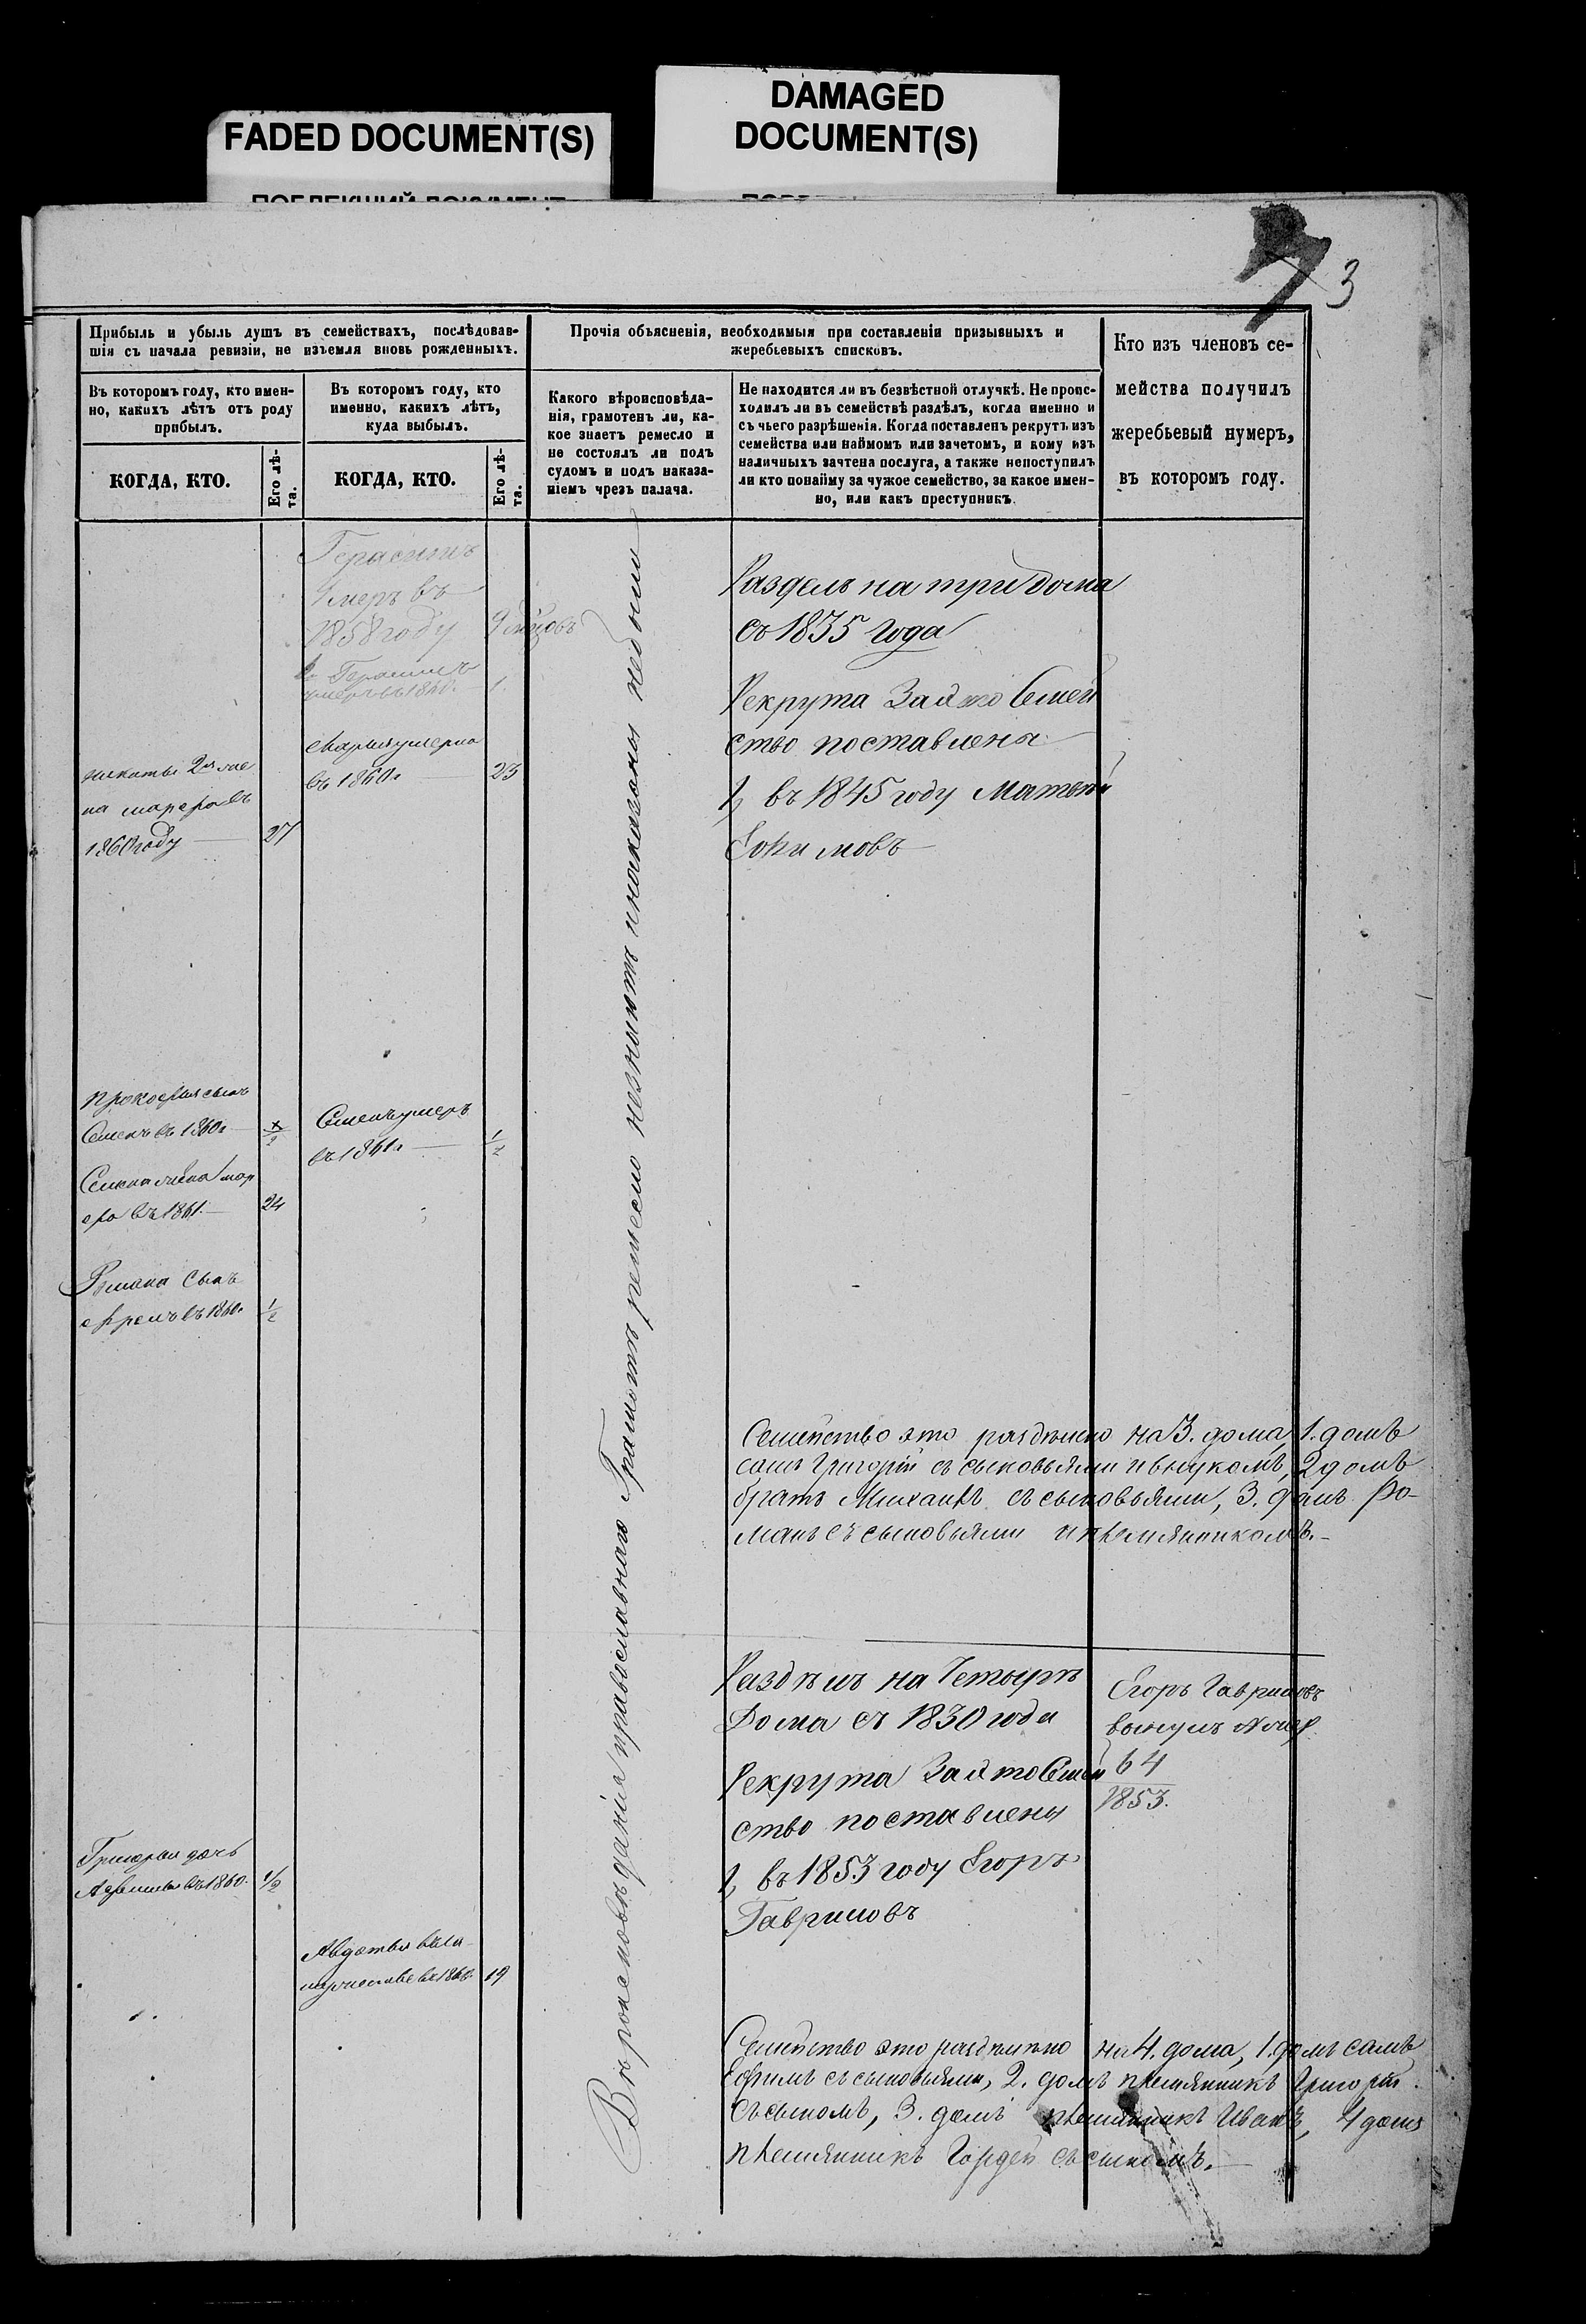 FADED DOCUMENT(S)
DAMAGED
DOCUMENT(S)
3
Прибыль и убыль душъ въ семействахъ, послѣдовав-
шія съ начала ревизіи, не изъемля вновь рожденныхъ.
Прочія объясненія, необходимыя при составленіи призывныхъ и
жеребьевыхъ списковъ.
Кто изъ членовъ се-
мейства получилъ
жеребьевый нумеръ,
въ которомъ году.
Въ которомъ году, кто имен-
но, какихъ лѣтъ отъ роду
прибылъ.
Въ которомъ году, кто
именно, какихъ лѣтъ,
куда выбылъ.
Какого вѣроисповѣда-
нія, грамотенъ ли, ка-
кое знаетъ ремесло и
не состоялъ ли подъ
судомъ и подъ наказа-
ніемъ чрезъ палача.
Не находится ли въ безвѣстной отлучкѣ. Не проис-
ходилъ ли въ семействѣ раздѣлъ, когда именно и
съ чьего разрѣшенія. Когда поставленъ рекрутъ изъ
семейства или наймомъ или зачетомъ, и кому изъ
наличныхъ зачтена послуга, а также непоступилъ
ли кто понайму за чужое семейство, за какое имен-
но, или какъ преступникъ.
КОГДА, КТО.
Его лѣ-
та.
КОГДА, КТО.
Его лѣ-
та.
Герасимъ
умеръ въ
1858 году
9 мѣсцовъ
умеръ въ 1860. 1.
Марья умерла
въ 1860г 23
Никиты 2я же
на
1860 году 27
Прокофья сынъ
Семенъ въ 1860г 1/2
Семенъ умеръ
въ 1861г 1/2
въ 1861. 24
Романа сынъ
Ефремъ въ 1860г 1/2
Григорья дочь
въ 1860. 1/2
Авдотья
въ 1860 19
Вѣроисповѣданія православнаго Грамотѣ ремесло незнаютъ ненаказаны небыли
Раздѣлъ на три дома
съ 1835 года
Рекрута За это Семей
ство поставлены
1, въ 1845 году Матвѣй
Семейство это раздѣлено на 3. дома, 1. домъ
самъ Григорій съ сыновьями и внукомъ, 2 домъ
братъ Михаилъ съ сыновьями, 3. домъ Ро-
манъ съ сыновьями и племянникомъ.
Раздѣлъ на Четырѣ
Дома съ 1830 года
Рекрута За это Семей
ство поставлены
1, въ 1853 году Егоръ
Гавриловъ
Егоръ Гавриловъ
вынулъ №
64
1853.
Семейство это раздѣлено на 4. дома, 1. домъ самъ
Ефимъ съ сыновьями, 2. домъ племянникъ Григорій
съ сыномъ, 3. домъ племянникъ Иванъ, 4 домъ
племянникъ Гордей съ сыномъ.